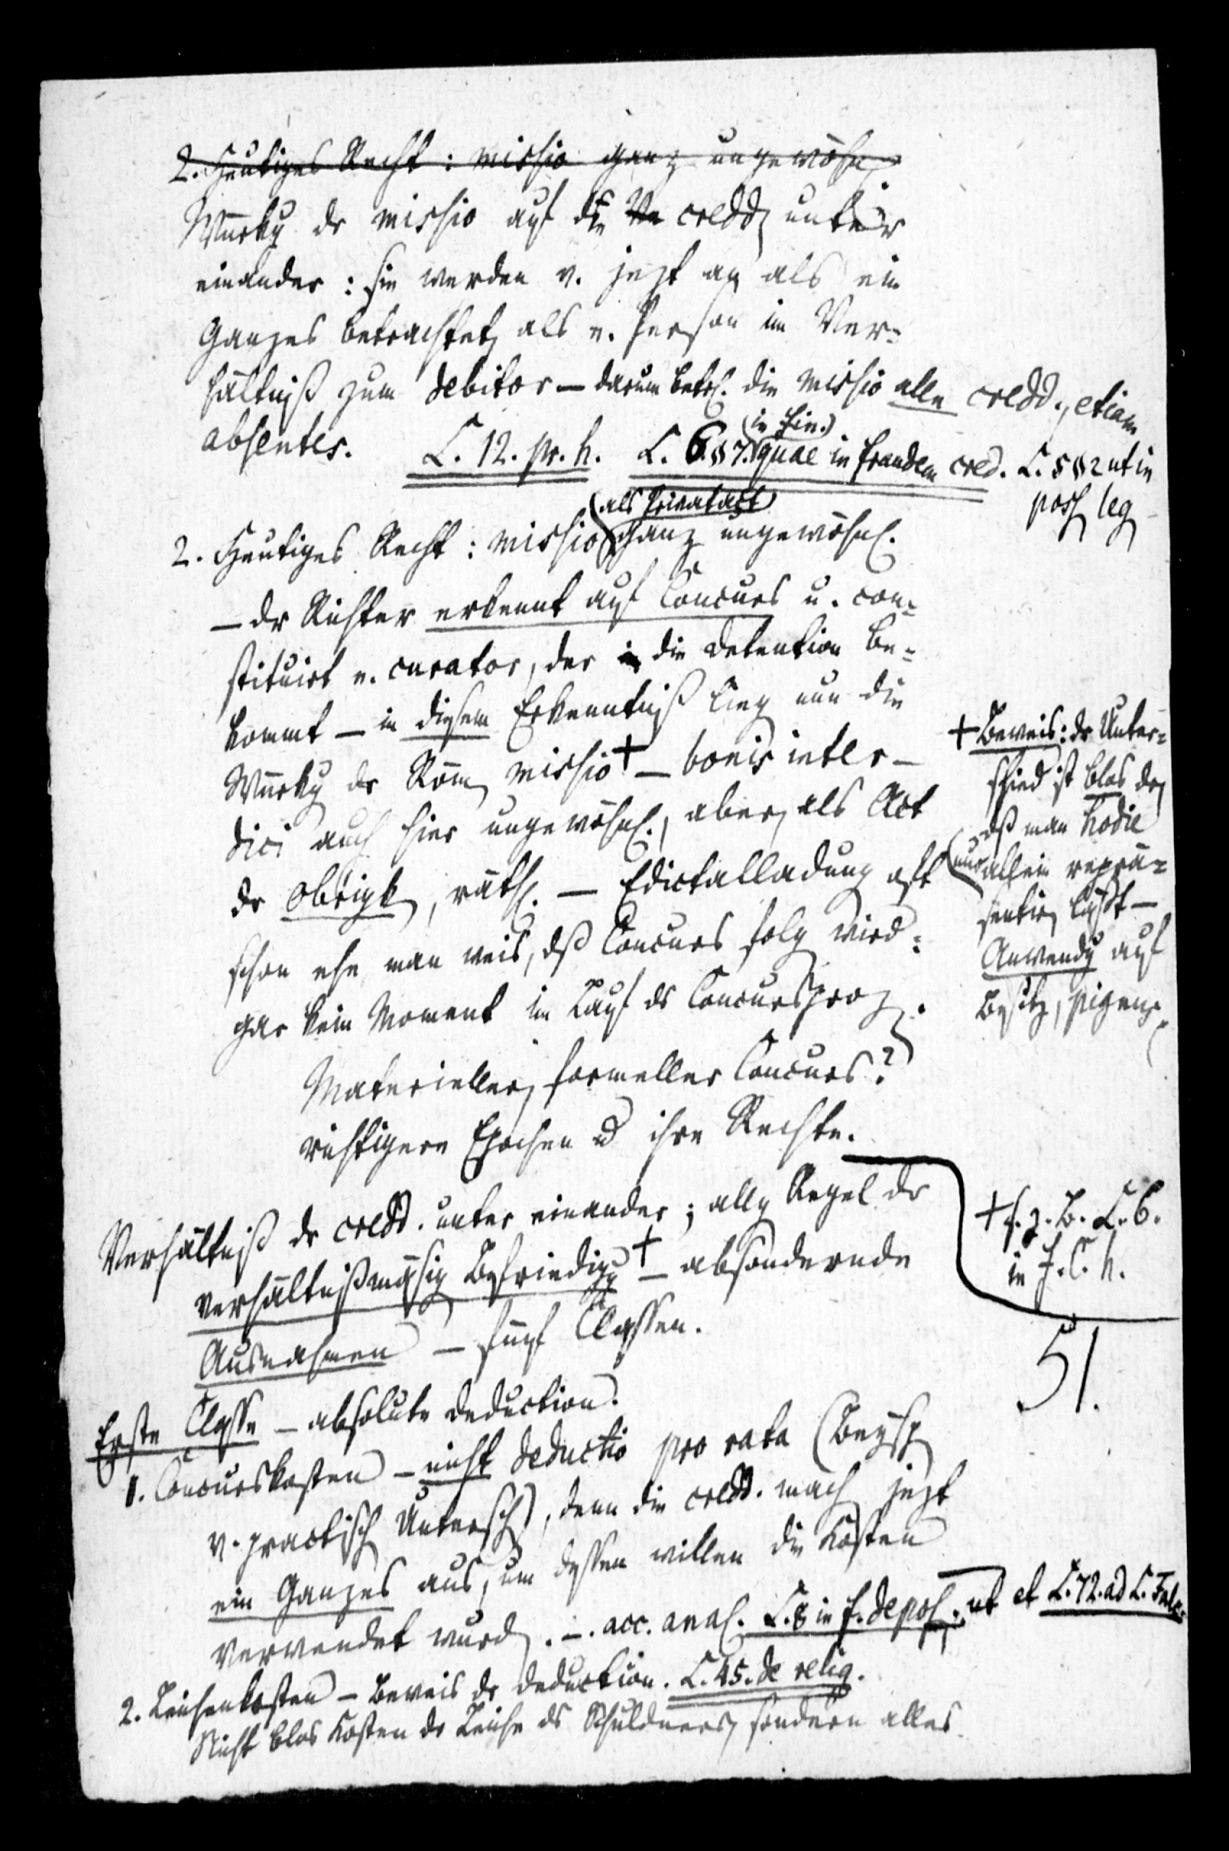 2. Heutiges Recht: missio ganz ungewöhnl.
Wirkg dr missio auf die credd unter
einander: sie werden v. jezt an als ein
Ganzes betrachtet, als e. Person im Ver-
hältniß zum debitor — darum betr. die missio alle credd., etiam
absentes. L. 12. pr. h. L. 6. § 7. (in fin.) quae in fraudem cred. L. 5 § 2 ut in
poss leg
2. Heutiges Recht: missio (als Privatact) ganz ungewöhnl.
— dr Richter erkennt auf Concurs u. con-
stituirt e. curator, der die Detention be-
kommt — in diesem Erkenntniß lieg nun die
Wirkg dr Röm missio + — bonis inter-
dici auch hier ungewöhnl., aber als Act
dr Obrigk, räthl. — Edictalladung oft
schon ehe man weis, dß Concurs folg wird:
gar kein Moment im Lauf ds Concursproz.
+ Beweis: dr Unter-
schied ist blos dr
dß man hodie
(nur allein reprä-
sentir läßt —
Anwendg auf
Besitz, pigen.
Materieller, formeller Concurs?
richtigere Epochen u ihre Rechte.
Verhältniß dr credd. unter einander; allg Regel dr
verhältnißmäsig Befriedigg + — absondernde
Ausnahmen — fünf Classen.
+ s. z. B. L. 6.
in f. C. h.
51.
Erste Classe — absolute Deduction.
1. Concurskosten — nicht deductio pro rata (Beysp
v. practisch Untersch), denn die credd. mach jezt
ein Ganzes aus, um dessen willen die Kosten
verwendet wurd. — acc. anal. L. 8 in f. depos. ut et L. 72. ad L. Falc.
2. Leichenkosten — Beweis dr Deduction. L. 45. de relig.
Nicht blos Kosten dr Leiche ds Schuldners, sondern alles